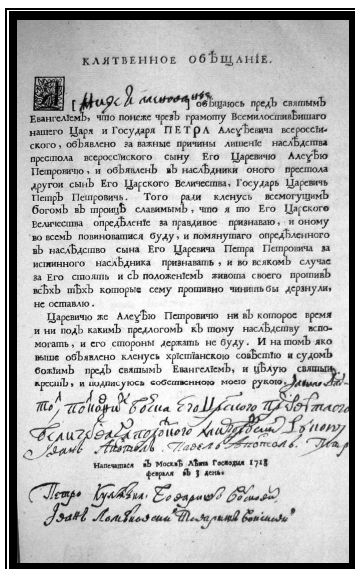 КЛЯТВЕННОЕ ОБѢЩАНІЕ.
Я [нижеименованные] обѣщаюсь предъ святымъ
Евангелїемъ, что понеже чрезъ грамоту Всемилостивѣишаго
нашего Царя и Государя ПЕТРА Алеѯѣевича всероссїи-
ского, объявлено за важные причины лишенїе наслѣдства
престола всероссїиского сыну Его Царевичю Алеѯѣю
Петровичю, и объявленъ въ наслѣдники оного престола
другои сынъ Его Царского Величества, Государь Царевичь
Петръ Петровичь. Того ради кленусь всемогущимъ
богомъ въ троицѣ славимымъ, что я то Его Царского
Величества опредѣленїе за правдивое признаваю, и оному
во всемъ повиноватися буду, и помянутаго опредѣленного
въ наслѣдство сына Его Царевича Петра Петровича за
истинного наслѣдника признавать, и во всякомъ случае
за Его стоять и съ положенїемъ живота своего противъ
всѣхъ тѣхъ которые сему противно чинить бы дерзнули,
не оставлю.
Царевичю же Алеѯѣю Петровичю ни въ которое время
и ни подъ какимъ предлогомъ къ тому наслѣдству вспо-
могать, и его стороны держать не буду. И на томъ яко
выше объявлено кленусь хрїстїанскою совѣстїю и судомъ
божїимъ предъ святымъ Евангелїемъ, и цѣлую святыи
крестъ, и подписуюсь собственною моею рукою.
Иванъ Апостолъ Павелъ Апостолъ
Напечатася въ Москвѣ Лѣта Господня 1718
февраля въ 3 день.
Петро
Иванъ